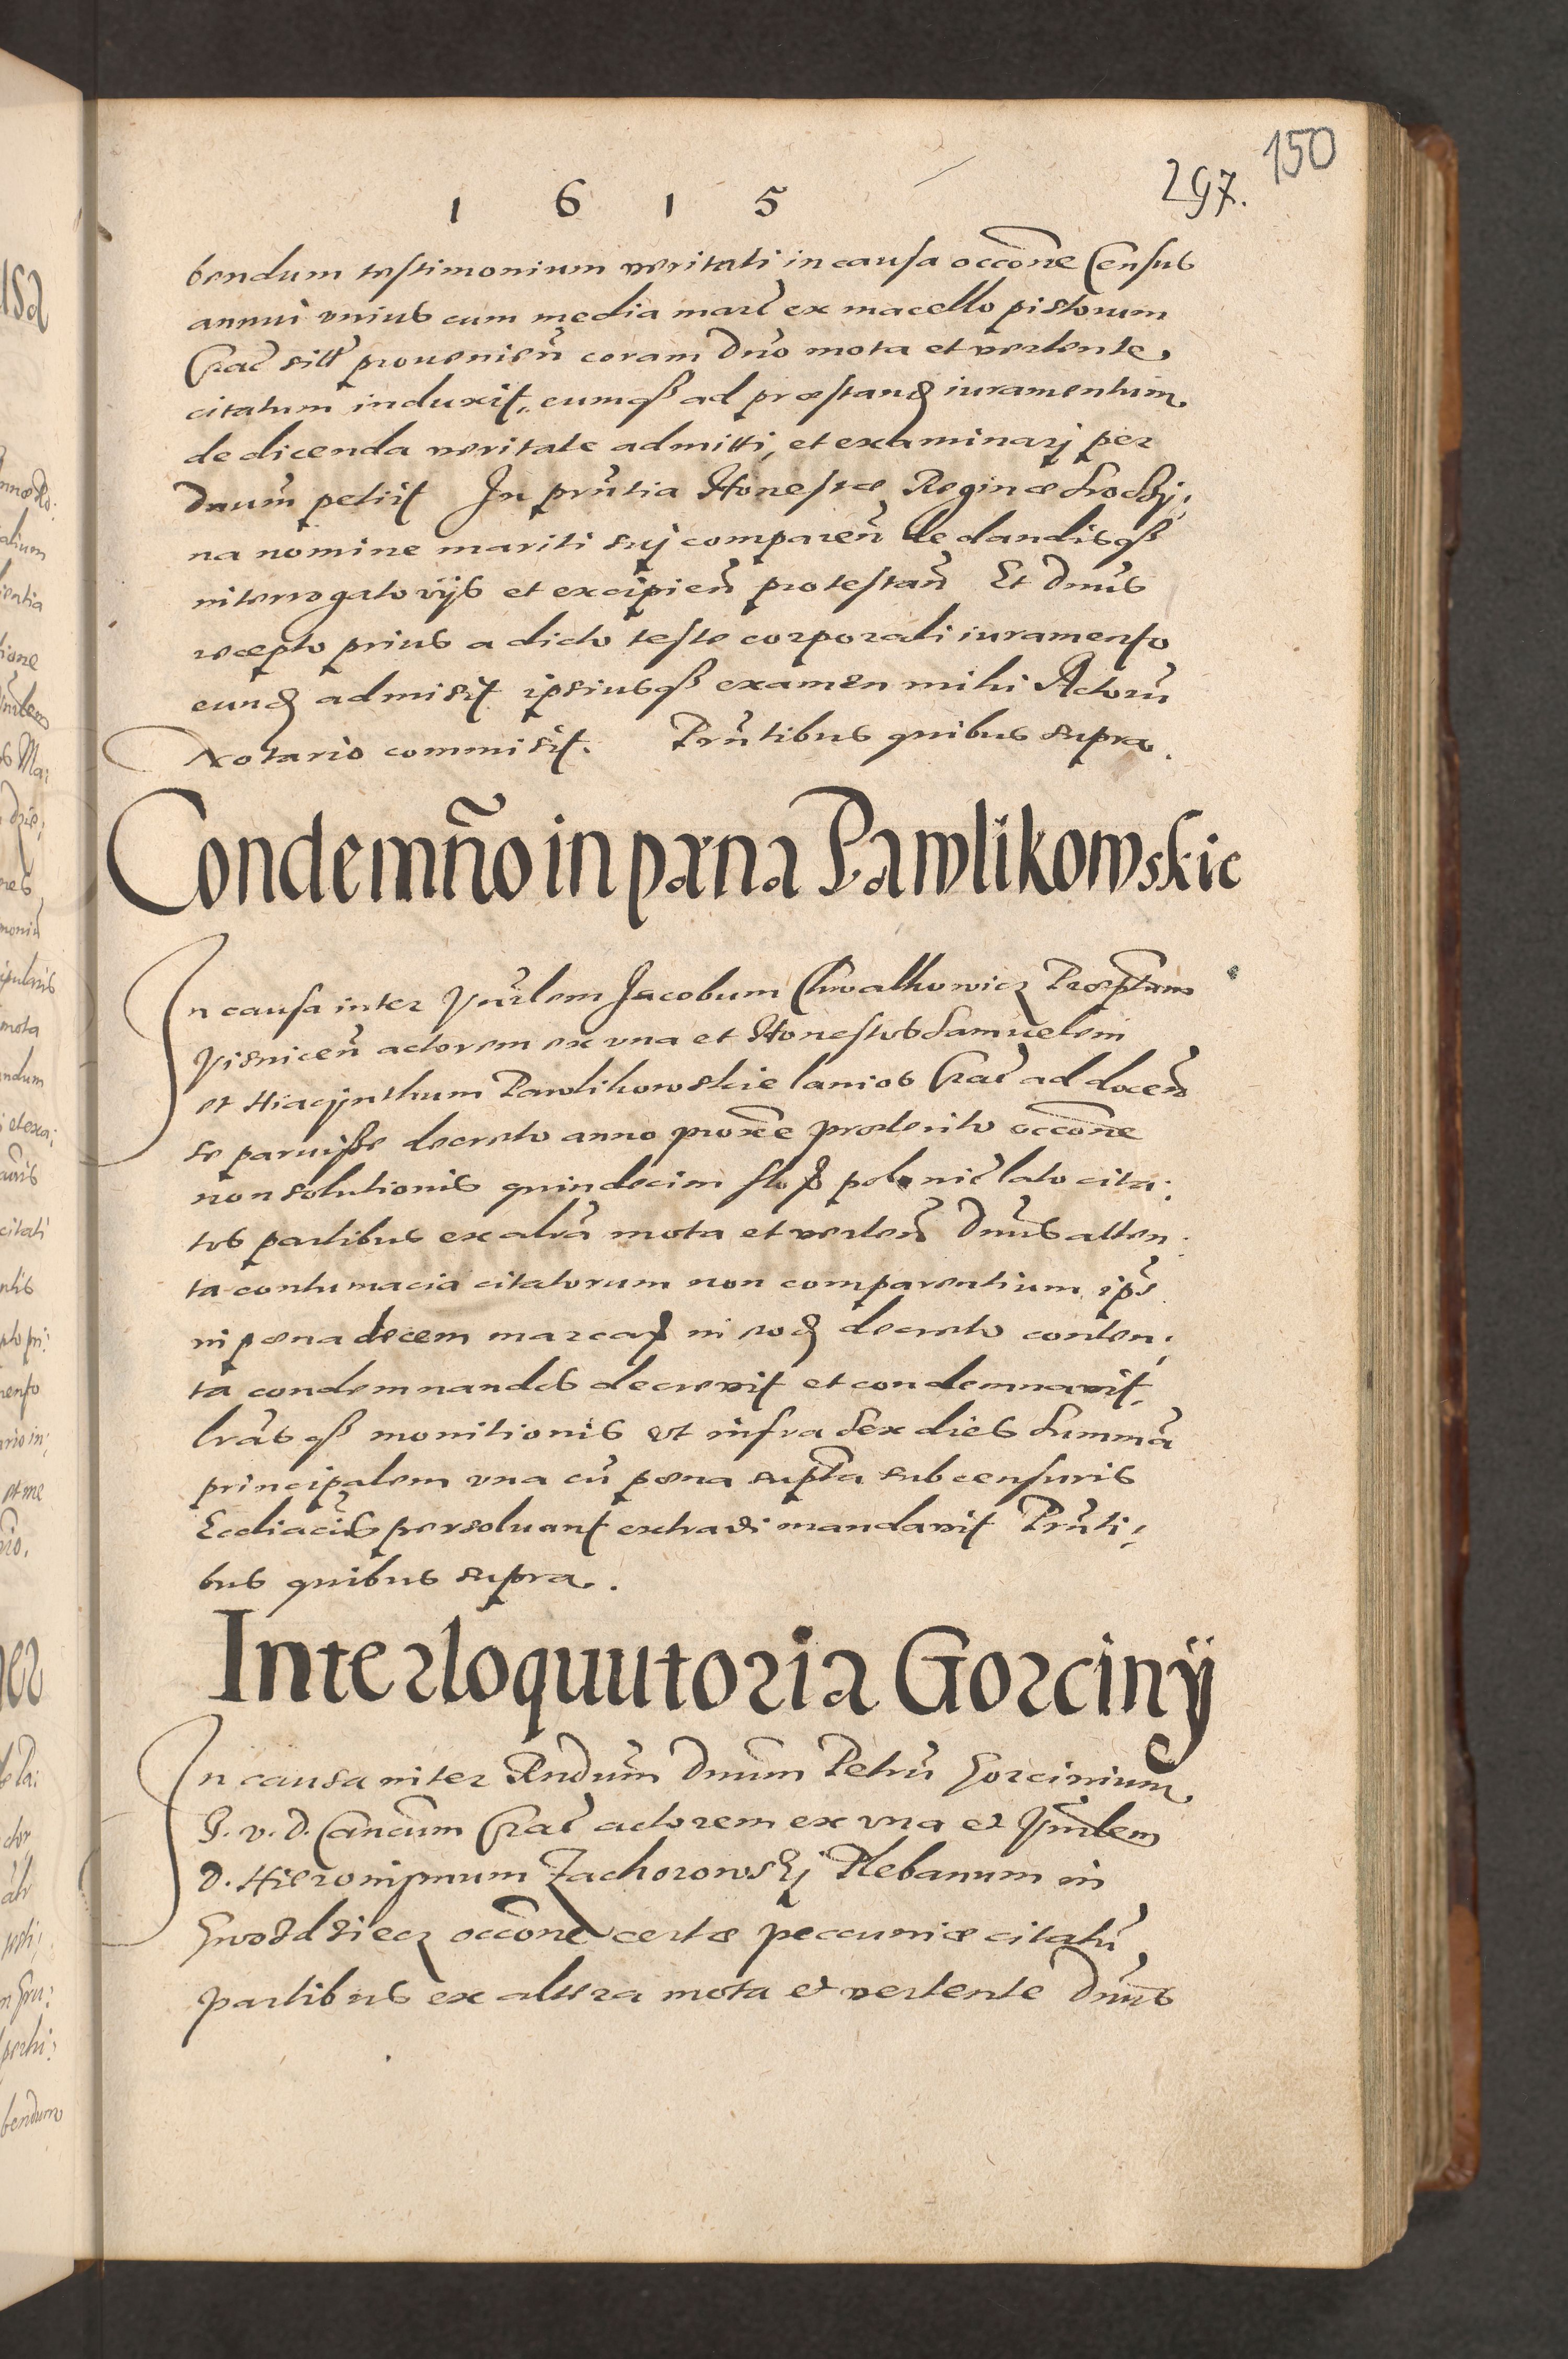 150
297.
1 6 1 5
bendum testimonium veritati in causa occõne Census
annui unius cum media marc̃ ex macello pistorum
Crac̃ sitt̃ provenieñ coram Dño mota et vertente
citatum induxit, eumqß ad præstand iuramentum
de dicenda veritate admitti, et examinarj per
Dnum̃ petiit In prñtia Honestæ Reginæ
na nomine mariti suj compareñ de dandisqß
interrogatorijs et excipieñ protestañ Et Dnus̃
recepto prius a dicto teste corporali iuramento
eund admisit ipsiusqß examen mihi Actorũ
Notario commisit. Prñtibus quibus supra.
Condemnõ in pæna Pawlikowskie
In causa inter Vñrlem Jacobum Chwalkowicz Præptum
Visniceñ actorem ex una et Honestos Samuelem
et Hiacynthum Pawlikowskie lanios Crac̃ ad doceñ
se paruisse decreto anno proxẽ præterito occõne
non solutionis quindecim flor polonic̃ lato cita;
tos partibus ex alrã mota et verteñ Dnus̃ atten;
ta contumacia citatorum non comparentium ips̃
in pæna decem marcar in eod decreto conten;
ta condemnandos decrevit et condemnavit,
lrãsqß monitionis ut infra sex dies summã
principalem una cũ pæna suptã sub censuris
Eccliacis̃ persolvant extradi mandavit Prñti;
bus quibus supra.
Interloquutoria Gorcinÿ
In causa inter Rndum̃ Dnum̃ Petrũ Gorcinium
J. v. d. Cancum̃ Crac̃ actorem ex una et Vñrlem
D. Hieronijmum Zachorowskj Plebanum in
Gwozdziecz occõne certæ peccuniæ citatũ
partibus ex altera mota et vertente Dnus̃